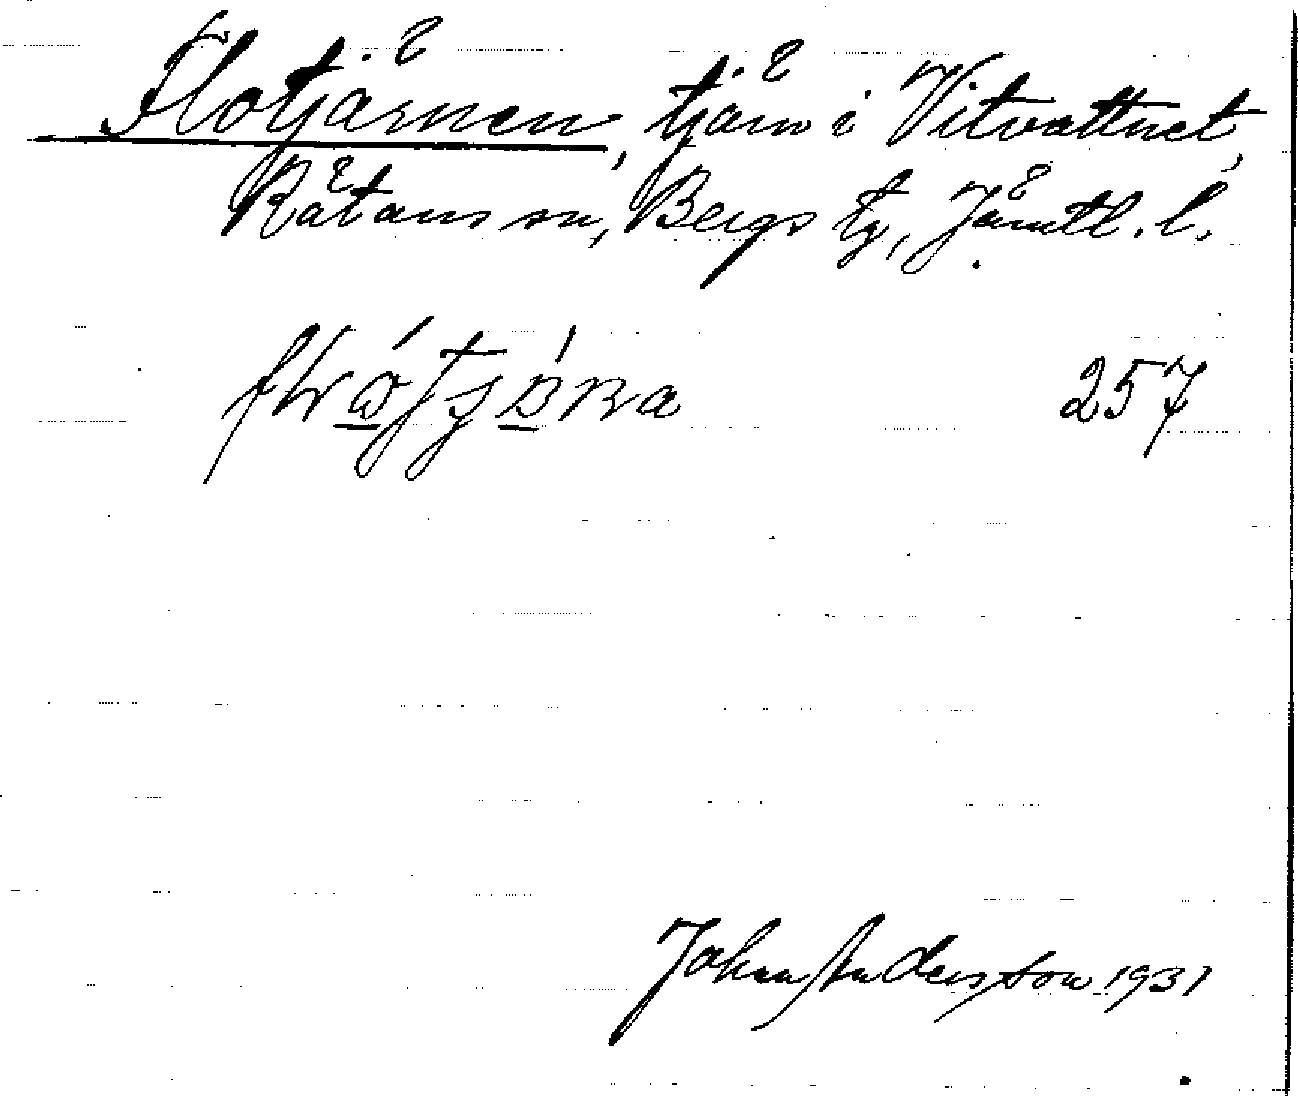 Flotjärnen, tjärn i Vitvattnet,
Rätans sn, Bergs tg, Jämtl. l.
257
John Andersson 1931